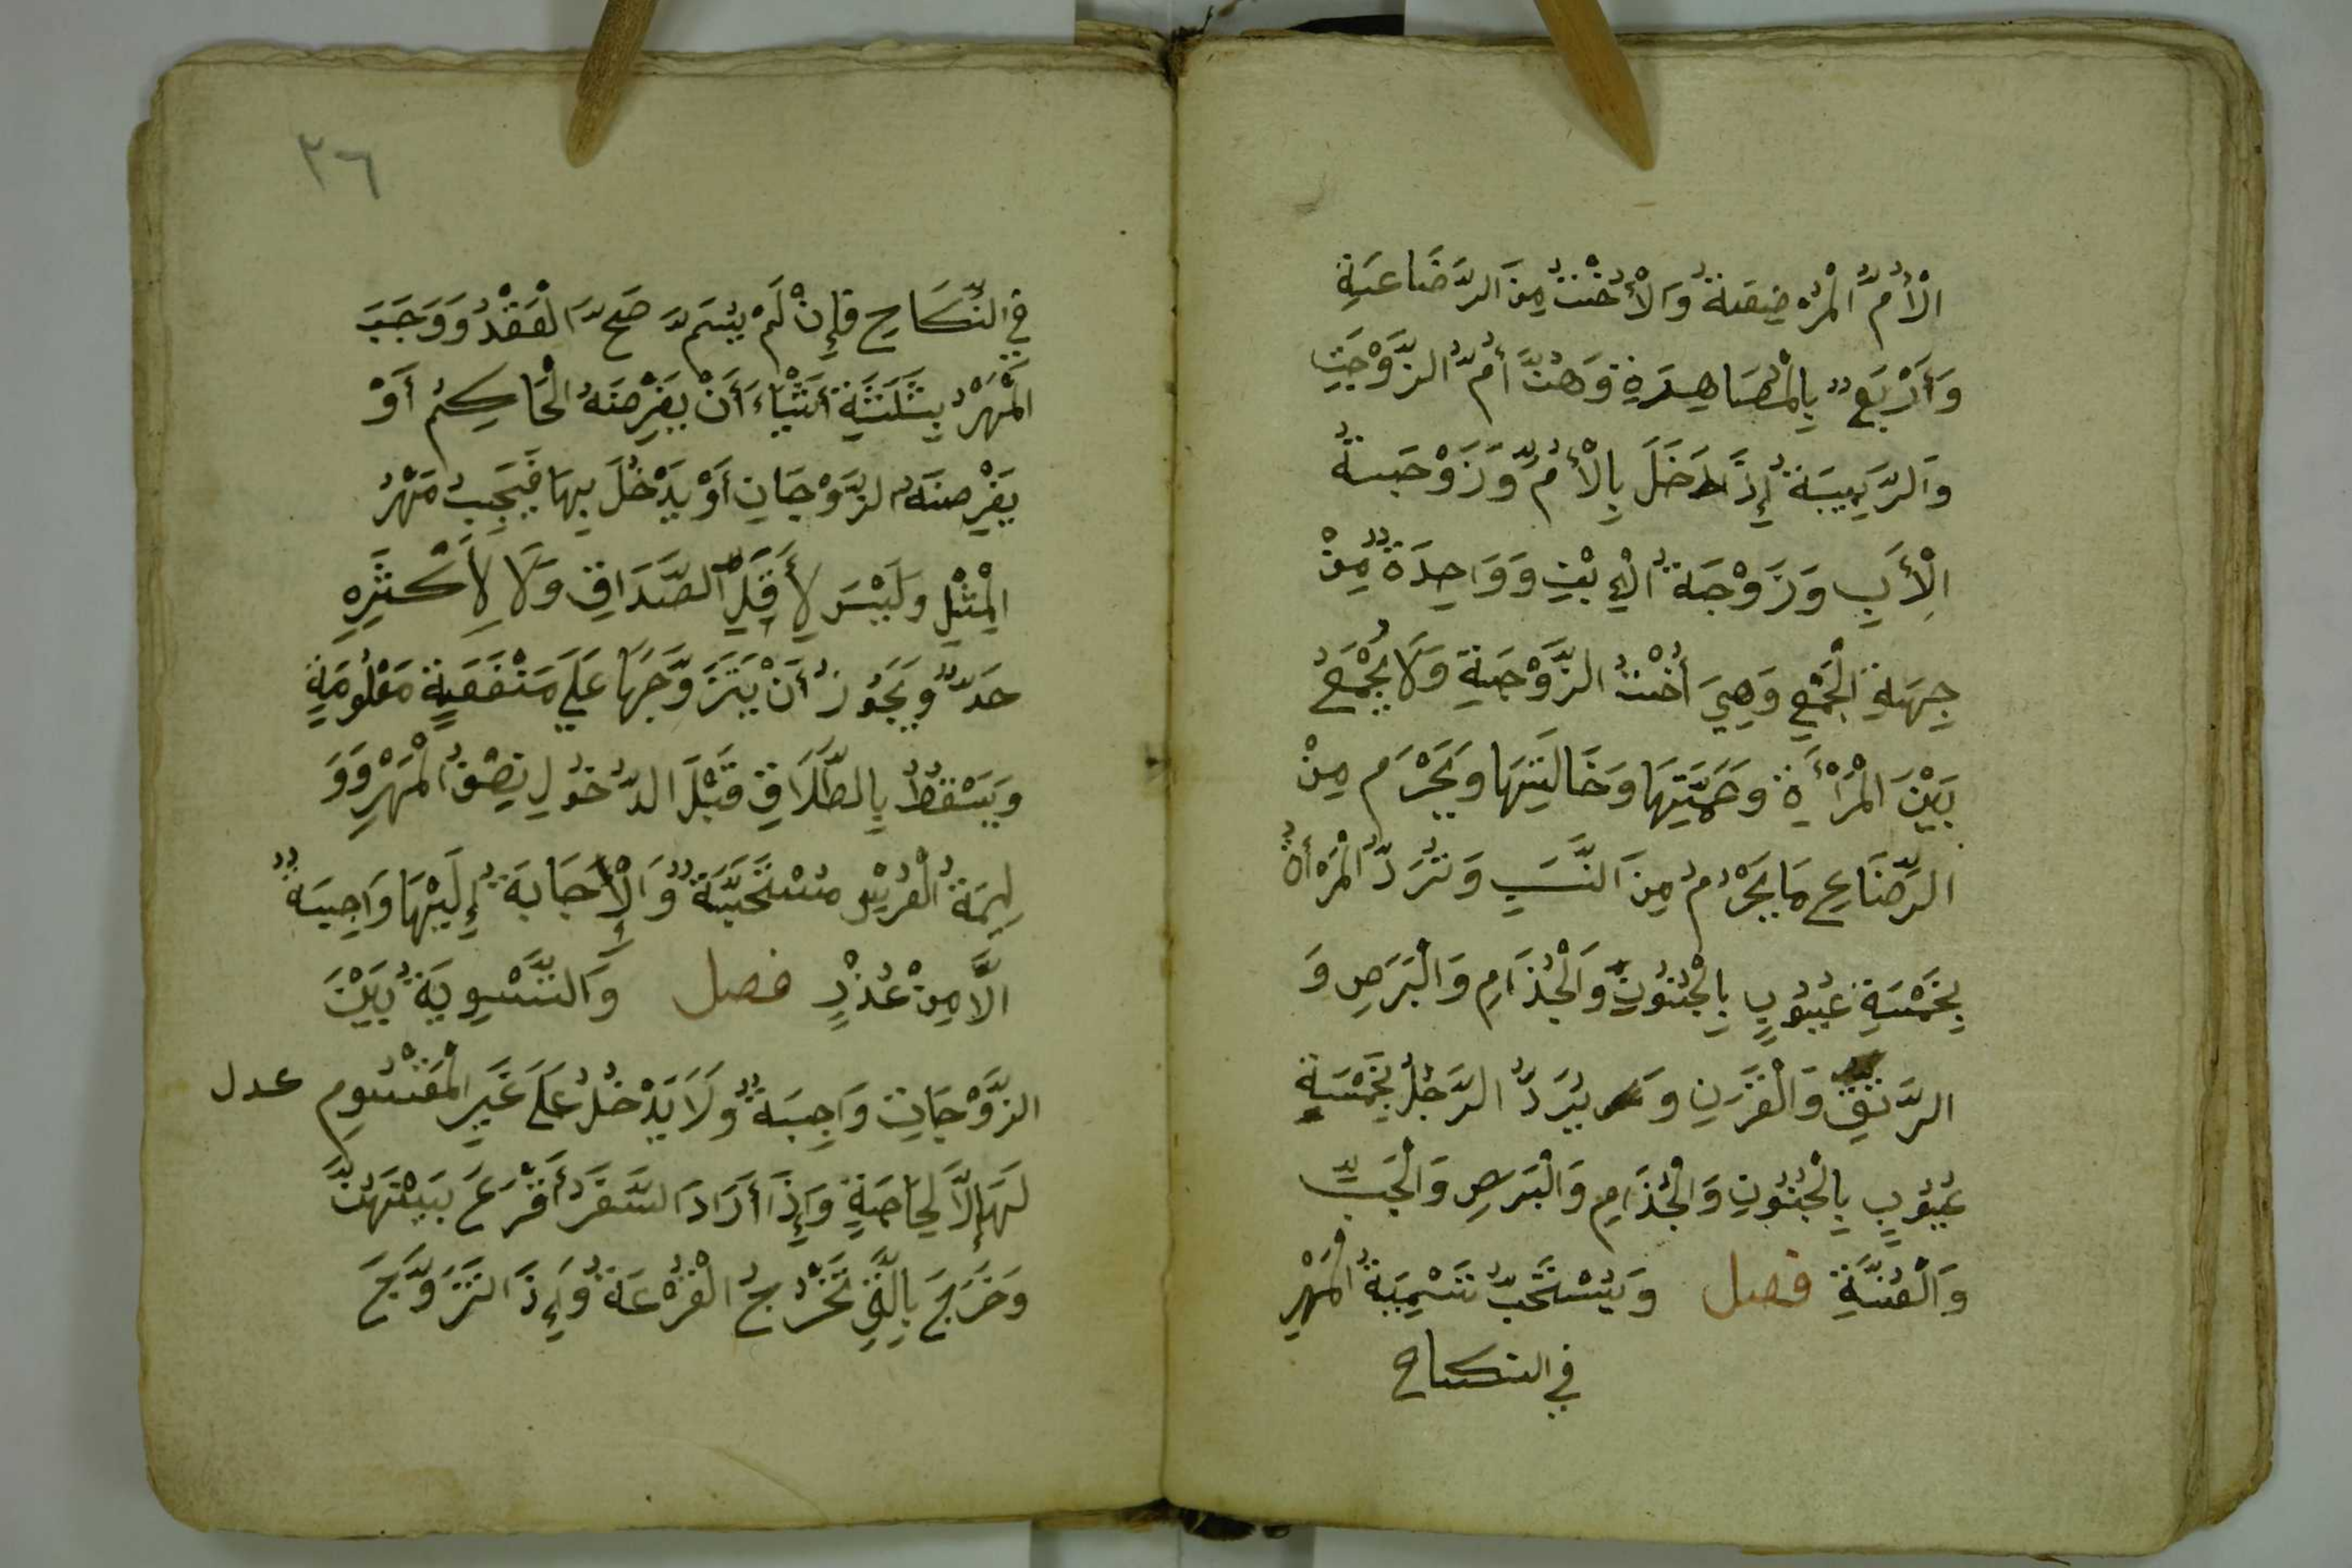 الْأُمُّ الْمُرْضِعَةُ وَالْأُخْتُ مِنَ الرَّضَاعَةِ
وَأَرْبَعٌ بِالْمُصَاهِرَةِ وَهُنَّ أُمُّ الزَّوْجَةِ
وَالرَّبِيبَةُ إِذَا دَخَلَ بِالْأُمِّ وَزَوْجَةُ
الْأَبِ وَزَوْجَةُ الْإِبْنِ وَوَاحِدَةٌ مِنْ
جِهَةِ الْجَمْعِ وَهِيَ أُخْتُ الزَّوْجَةِ وَلَا يُجْمَعُ
بَيْنَ الْمَرْأَةِ وَعَمَّتِهَا وَخَالَتِهَا وَيَحْرُم مِنْ
الرِّضَاعِ مَا يَحْرُمُ مِنَ النَّسَبِ وَتُرَدُّ الْمَرْأَةُ
بِخَمْسَةِ عُيُوبٍ بِالْجُنُونِ وَالْجُذَامِ وَالْبَرَصِ وَ
الرَّتَقِ وَالْقَرَنِ وَيُرَدُّ الرَّجُلُ بِخَمْسَةِ
عُيُوبٍ بِالْجُنُونِ وَالْجُذَامِ وَالْبَرَصِ وَالْجَبِّ
وَالْعُنَّةِ فصل وَيُسْتَحَبُّ تَسْمِيَةُ الْمَهْرِ
في النكاح
٣٦
فِي النِّكَاحِ فَإِنْ لَمْ يُسَمَّ صَحَّ الْعَقْدُ وَوَجَبَ
الْمَهْرُ بِثَلَثَةِ أَشْيَاءَ أَنْ يَفْرِضَهُ الْحَاكِمُ أَوْ
يَفْرِضَهُ الزَّوْجَانِ أَوْ يَدْخُلَ بِهَا فَيَجِبُ مَهْرُ
الْمِثْلِ وَلَيْسَ لِأَقَلِّ الصَّدَاقِ وَلَا لِأَكْثَرِهِ
حَدٌّ وَيَجُوزُ أَنْ يَتَزَوَّجَهَا عَلَى مَنْفَعَةٍ مَعْلُومَةٍ
وَيَسْقُطُ بِالطَّلَاقِ قَبْلَ الدُّخُولِ نِصْفُ الْمَهْرِ وَوَ
لِيمَةُ الْعُرْسِ مُسْتَحَبَّةٌ وَالْأِجَابَةُ إِلَيْهَا وَاجِبَةٌ
الَّا مِنْ عُذْرٍ فصل وَالتَّسْوِيَةُ بَيْنَ
الزَّوْجَاتِ وَاجِبَةٌ وَلَا يَدْخُلُ عَلَى غَيْرِ الْمَقْسُومِ عدل
لَهَا إِلَّا لِحَاجَةٍ وَإِذَا أَرَادَ السَّفَرَ أَقْرَعَ بَيْنَهُنَّ
وَخَرَجَ بِالَّتِي تَخْرُجُ الْقُرْعَةُ وَإِذَا تَزَوَّجَ